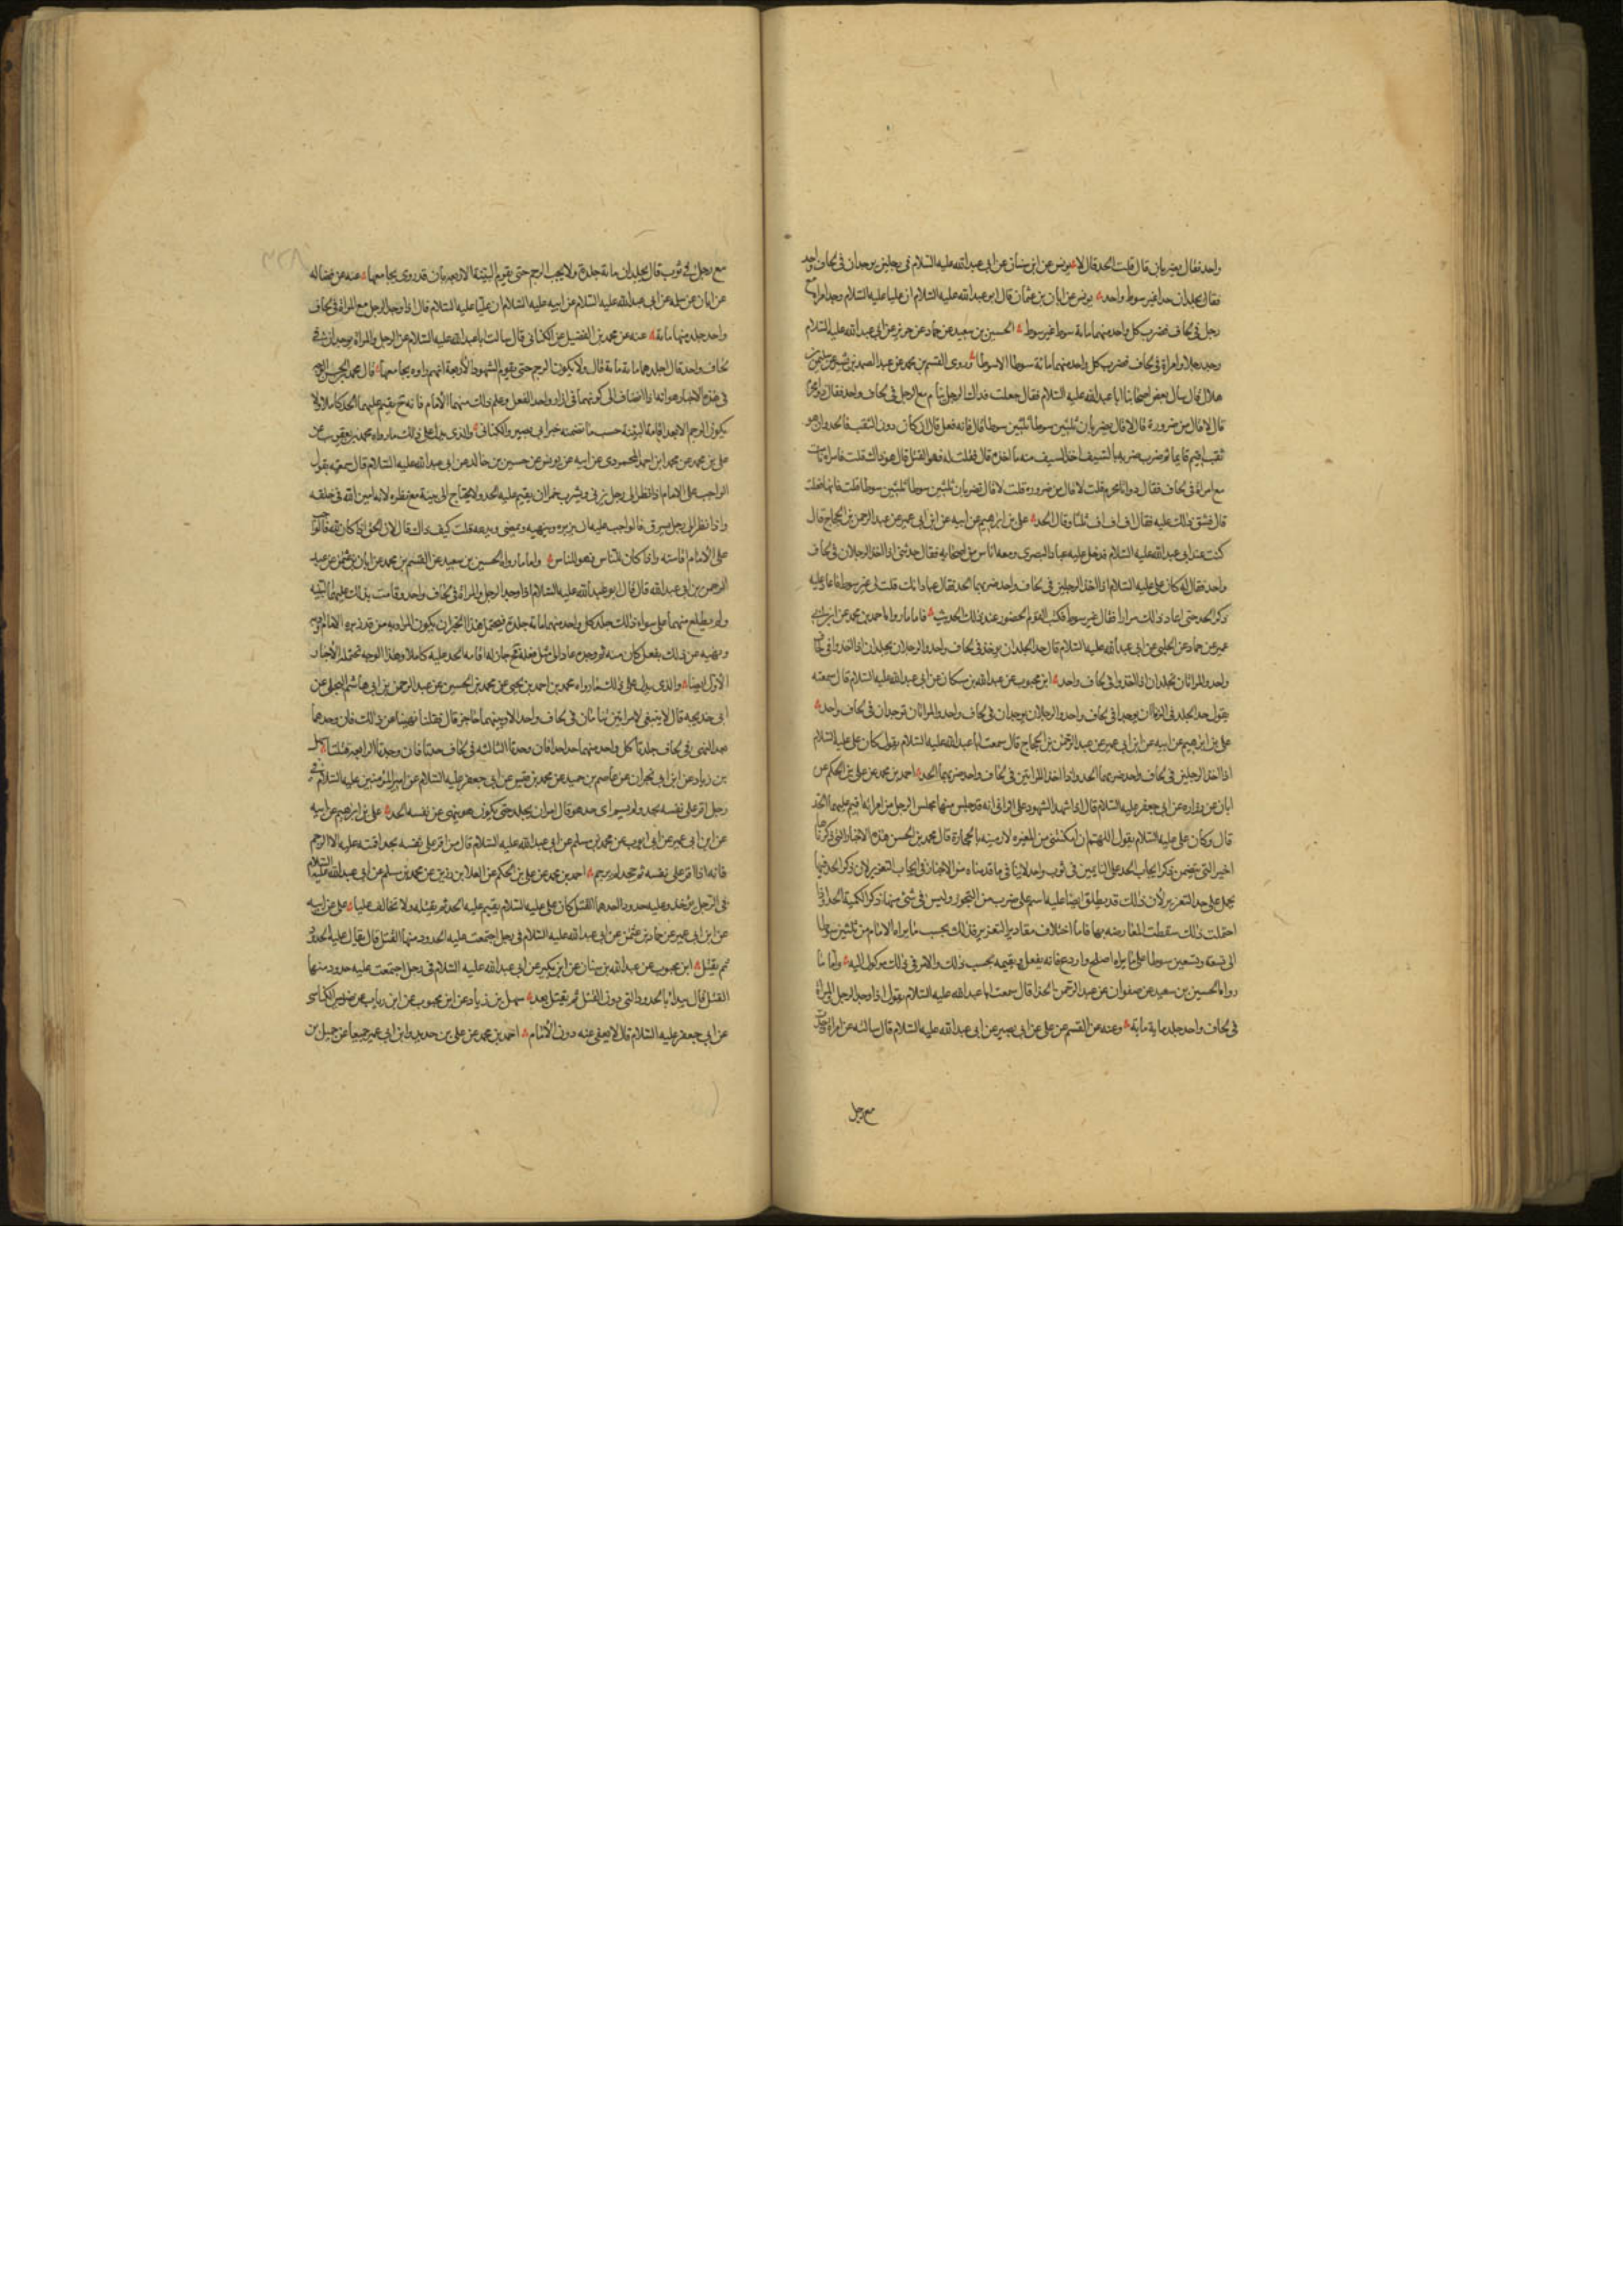 واحد فقال يضربان قال قلت الحد قال لا يونس عن ابن سنان عن ابي عبد الله عليه السلام في رجلين يوجدان في لحاف واحد
فقال يجلدان حدا غير سوط واحد يونس عن ابان بن عثمان قال قال ابو عبد الله عليه السلام ان عليا عليه السلام وجد امراة مع
رجل في لحاف فضرب كل واحد منهما مائة سوط غير سوط الحسين بن سعيد عن حماد عن حريز عن ابي عبد الله عليه السلام
وجد رجلا وامراة في لحاف فضرب كل واحد منهما مائة سوطا الا سوطا وروى القسم بن محمد عن عبد الصمد بن بشير عن سليمن بن
هلال قال سال بعض اصحابنا ابا عبد الله عليه السلام فقال جعلت فداك الرجل ينام مع الرجل في لحاف واحد فقال ذو محرم
قال لا قال من ضرورة قال لا قال يضربان ثلثين سوطا ثلثين سوطا قال فانه فعل قال ان كان دون الثقب فالحد وان هو
ثقب اقيم قايما ثم ضرب ضربة بالسيف اخذ السيف منه ما اخذه قال فقلت له فهو القتل قال هو ذاك قلت فامراة نامت
مع امراة في لحاف فقال ذواتا محرم قلت لا قال من ضرورة قلت لا قال تضربان ثلثين سوطا ثلثين سوطا قلت فانها فعلت
قال فشق ذلك عليه فقال اف اف اف ثلثا وقال الحد على بن ابرهيم عن ابيه عن ابن ابي عمير عن عبد الرحمن بن الحجاج قال
كنت عند ابي عبد الله عليه السلام فدخل عليه عباد البصري ومعه اناس من اصحابه فقال حدثني اذا اخذ الرجلان في لحاف
واحد فقال له كان علي عليه السلام اذا اخذ الرجلين في لحاف واحد ضربهما الحد فقال عباد انك قلت لي غير سوط فاعاد عليه
ذكر الحد حتى اعاد ذلك مرارا فقال غير سوط فكتب القوم الحضور عند ذلك الحديث فاما ما رواه احمد بن محمد عن ابن ابي
عمير عن حماد عن الحلبي عن ابي عبد الله عليه السلام قال حد الجلد ان يوجدا في لحاف واحد والرجلان يجلدان اذا اخذوا في لحاف
واحد والمراتان تجلدان اذا اخذوا في لحاف واحد ابن محبوب عن عبد الله بن مسكان عن ابي عبد الله عليه السلام قال سمعته
يقول حد الجلد في الزنا ان يوجدا في لحاف واحد والرجلان يوجدان في لحاف واحد والمراتان توجدان في لحاف واحد
على بن ابرهيم عن ابيه عن ابن ابي عمير عن عبد الرحمن بن الحجاج قال سمعت ابا عبد الله عليه السلام يقول كان علي عليه السلام
اذا اخذ الرجلين في لحاف واحد ضربهما الحد واذا اخذ المراتين في لحاف واحد ضربهما الحد احمد بن محمد عن علي بن الحكم عن
ابان عن زراره عن ابي جعفر عليه السلام قال اذا شهد الشهود على الزاني انه قد جلس منها مجلس الرجل من امراته اقيم عليهما الحد
قال وكان علي عليه السلام يقول اللهم ان امكنتني من المغيره لارمينه بالحجارة قال محمد بن الحسن هذه الاخبار التي ذكرناها
اخيرا التي تتضمن ذكر ايجاب الحد على النايمين في ثوب واحد لا ينافي ما قدمناه من الاخبار في ايجاب التعزير لان ذكر الحد فيها
يحمل على حد التعزير لان ذلك قد يطلق ايضا عليه اسم على ضرب من التجوز وليس في شئ منها ذكر الكمية الحد فاذا
احتملت ذلك سقطت المعارضه بها فاما اختلاف مقادير التعزير فذلك بحسب ما يراه الامام من ثلثين سوطا
الى تسعة وتسعين سوطا على ما يراه اصلح واردع فانه يفعل ويقيمه بحسب ذلك والامر في ذلك موكول اليه واما ما
رواه الحسين بن سعيد عن صفوان عن عبد الرحمن الحذا قال سمعت ابا عبد الله عليه السلام يقول اذا وجد الرجل والمراة
في لحاف واحد جلدا ماية ماية وعنه عن القسم عن علي عن ابي بصير عن ابي عبد الله عليه السلام قال سالته عن امراة وجدت
مع رجل
مع رجل في ثوب قال يجلدان مائة جلدة ولا يجب الرجم حتى يقوم البينة الاربعة بان قد روى يجامعها عنه عن فضاله
عن ابان عن سلمه عن ابي عبد الله عليه السلام عن ابيه عليه السلام ان عليا عليه السلام قال اذا وجد الرجل مع المراة في لحاف
واحد جلد منهما مائة عنه عن محمد بن الفضيل عن الكناني قال سالت ابا عبد الله عليه السلام عن الرجل والمراة يوجدان في
لحاف واحد قال اجلدهما مائة مائة قال ولا يكون الرجم حتى يقوم الشهود الاربعة انهم راوه يجامعها قال محمد بن الحسن الوجه
في هذه الاخبار هو انه اذا انضاف الى كونهما في ازار واحد الفعل وعلم ذلك منهما الامام فانه ح يقيم عليهما الحد كاملا ولا
يكون الرجم الا بعد اقامة البينة حسب ما تضمنه خبر ابي بصير والكناني والذي يدل على ذلك ما رواه محمد بن يعقوب عن
على بن محمد عن محمد بن احمد المحمودى عن ابيه عن يونس عن حسين بن خالد عن ابي عبد الله عليه السلام قال سمعته يقول
الواجب على الامام اذا نظر الى رجل يزني ويشرب خمرا ان يقيم عليه الحد ولا يحتاج الى بينة مع نظره لانه امين الله في خلقه
واذا نظر الى رجل يسرق فالواجب عليه ان يزبره وينهيه ويمضي ويدعه قلت كيف ذاك قال لان الحق اذا كان لله فالواجب
على الامام اقامته واذا كان للناس فهو للناس واما ما رواه الحسين بن سعيد عن القسم بن محمد عن ابان بن عثمن عن عبد
الرحمن بن ابي عبد الله قال قال ابو عبد الله عليه السلام اذا وجد الرجل والمراة في لحاف واحد وقامت بذلك عليهما البينه
ولم يطلع منهما على سواء ذلك جلد كل واحد منهما مائة جلدة فيحتمل هذا الخبر ان يكون المراد به من قد زبره الامام وادبه
ونهيه عن ذلك بفعل كان منه ثم وجده عاد الى مثل فعله فح جاز له اقامة الحد عليه كاملا وهذا الوجه تحتمله الاخبار
الاولة ايضا والذي يدل على ذلك ما رواه محمد بن احمد بن يحيى عن محمد بن الحسين عن عبد الرحمن بن ابي هاشم البجلي عن
ابي خديجه قال لا ينبغي لامراتين تنامان في لحاف واحد الا وبينهما حاجز قال فعلتا نهيتا عن ذلك فان وجدهما
بعد النهي في لحاف جلدتا كل واحد منهما حدا حدا فان وجدتا الثالثه في لحاف حدتا فان وجدتا الرابعة قتلتا سهل
بن زياد عن ابن ابي نجران عن عاصم بن حميد عن محمد بن قيس عن ابي جعفر عليه السلام عن امير المؤمنين عليه السلام في
رجل اقر على نفسه بحد ولم يسم اى حد هو قال امر ان يجلد حتى يكون هو ينهى عن نفسه الحد على بن ابرهيم عن ابيه
عن ابن ابي عمير عن ابي ايوب عن محمد بن مسلم عن ابي عبد الله عليه السلام قال من اقر على نفسه بحد اقمته عليه الا الرجم
فانه اذا اقر على نفسه ثم جحد لم يرجم احمد بن محمد عن علي بن الحكم عن العلا بن رزين عن محمد بن مسلم عن ابي عبد الله عليه السلام
في الرجل يؤخذ وعليه حدود احدها القتل كان علي عليه السلام يقيم عليه الحد ثم يقتله ولا نخالف عليا على عن ابيه
عن ابن ابي عمير عن حماد بن عثمن عن ابي عبد الله عليه السلام في رجل اجتمعت عليه الحدود منها القتل قال يقام عليه الحدود
ثم يقتل ابن محبوب عن عبد الله بن سنان عن ابن بكير عن ابي عبد الله عليه السلام في رجل اجتمعت عليه حدود منها
القتل قال يبداء بالحدود التي دون القتل ثم يقتل بعد سهل بن زياد عن ابن محبوب عن ابن رياب عن ضريس الكناسى
عن ابي جعفر عليه السلام قال لا يعفى عنه دون الامام احمد بن محمد عن علي بن حديد وابن ابي عمير جميعا عن جميل بن